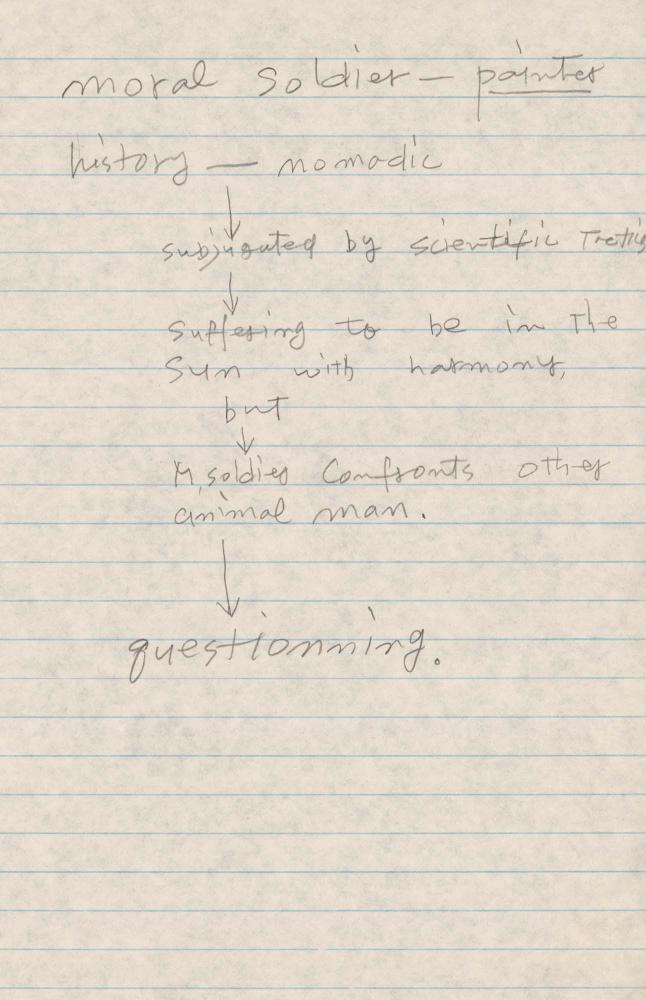 moral soldier — painter
history — nomadic
↓
subjugated by scientific
↓
suffering to be in the
sun with harmony,
but
↓
M, soldier Confronts other
animal man.
↓
questionning.